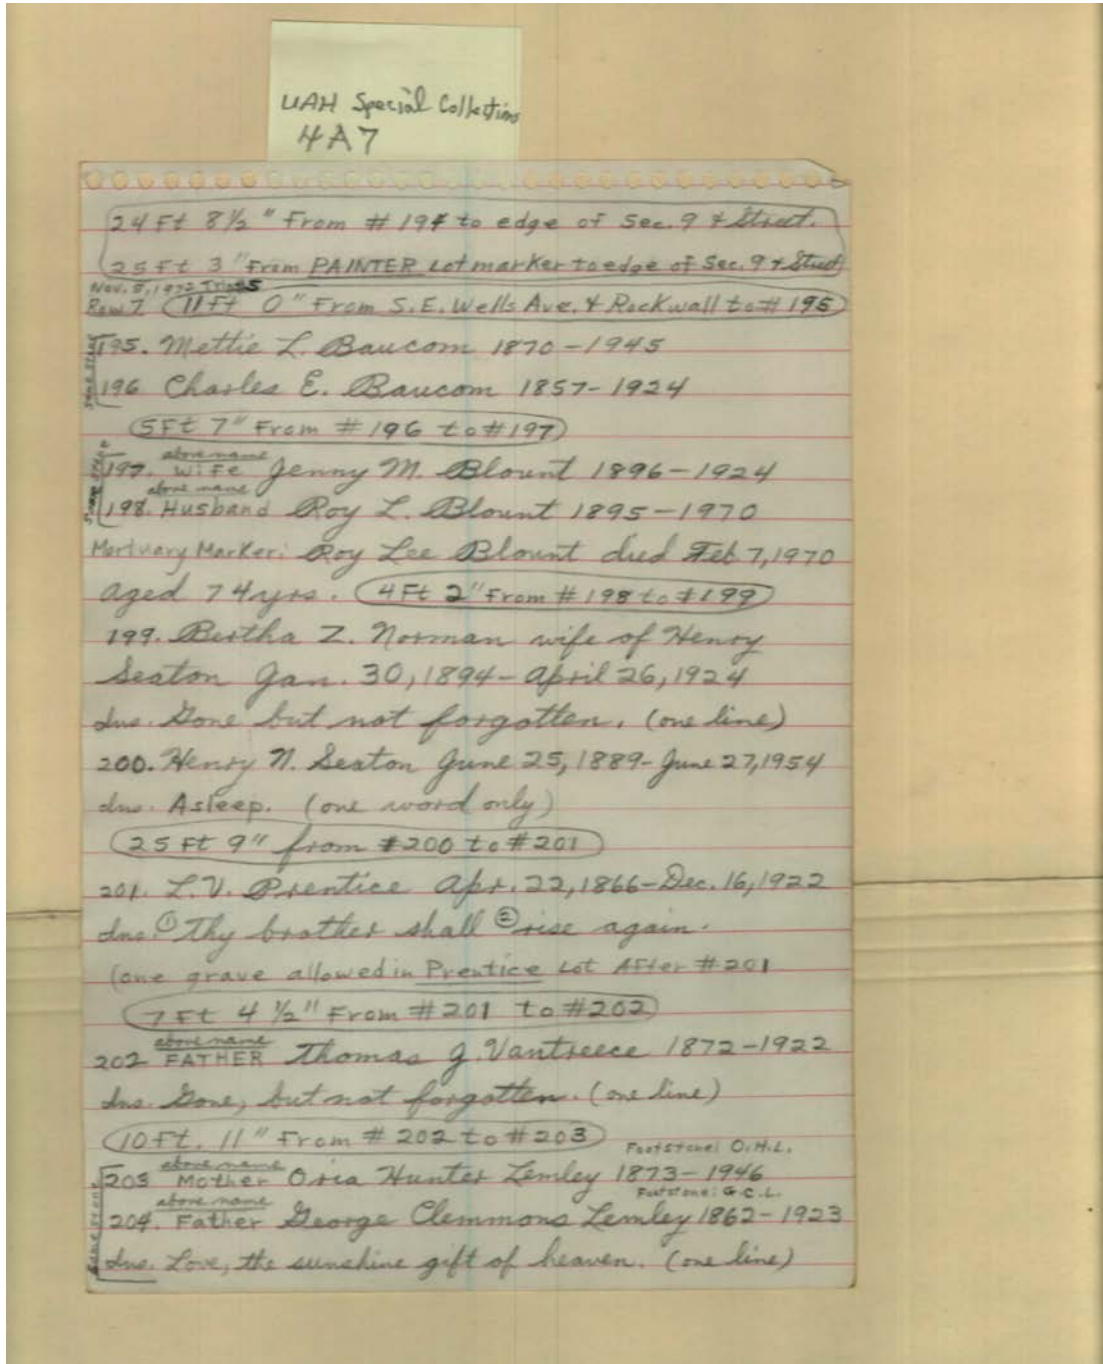 UAH Special Collections
4A7
24 Ft 8 1/2 " From # 194 to edge of Sec. 9 & Street.
25 Ft 3 " From PAINTER Lot marker to edge of Sec. 9 & Street
Nov. 5, 1972
Row 7 11 Ft 0 " From S.E. Wells Ave. & Rockwall to # 195
same stone
195. Mettie L. Baucom 1870 - 1945
196 Charles E. Baucom 1857 - 1924
5 Ft 7" From # 196 to #197
same stone
above name
197. Wife Jenny M. Blount 1896 - 1924
above name
198. Husband Roy L. Blount 1895 - 1970
Mortuary Marker: Roy Lee Blount died Feb 7, 1970
aged 74 yrs. 4 Ft 2" From # 198 to #199
199. Bertha Z. Norman wife of Henry
Seaton Jan. 30, 1894 - April 26, 1924
ins. Gone but not forgotten. (one line)
200. Henry N. Seaton June 25, 1889 - June 27, 1954
ins. Asleep. (one word only)
25 Ft 9" from #200 to #201
201. L.V. Prentice Apr. 22, 1866 - Dec. 16, 1922
ins. ① Thy brother shall ② rise again.
(one grave allowed in Prentice Lot After #201
7 Ft 4 1/2" From #201 to #202
above name
202 FATHER Thomas J. Vantreece 1872 - 1922
ins. Gone, but not forgotten. (one line)
10 Ft. 11" From # 202 to #203
Footstone: O.H.L.
same stone
above name
203 Mother Oria Hunter Lemley 1873 - 1946
Footstone: G.C.L.
above name
204. Father George Clemmons Lemley 1862 - 1923
ins. Love, the sunshine gift of heaven. (one line)